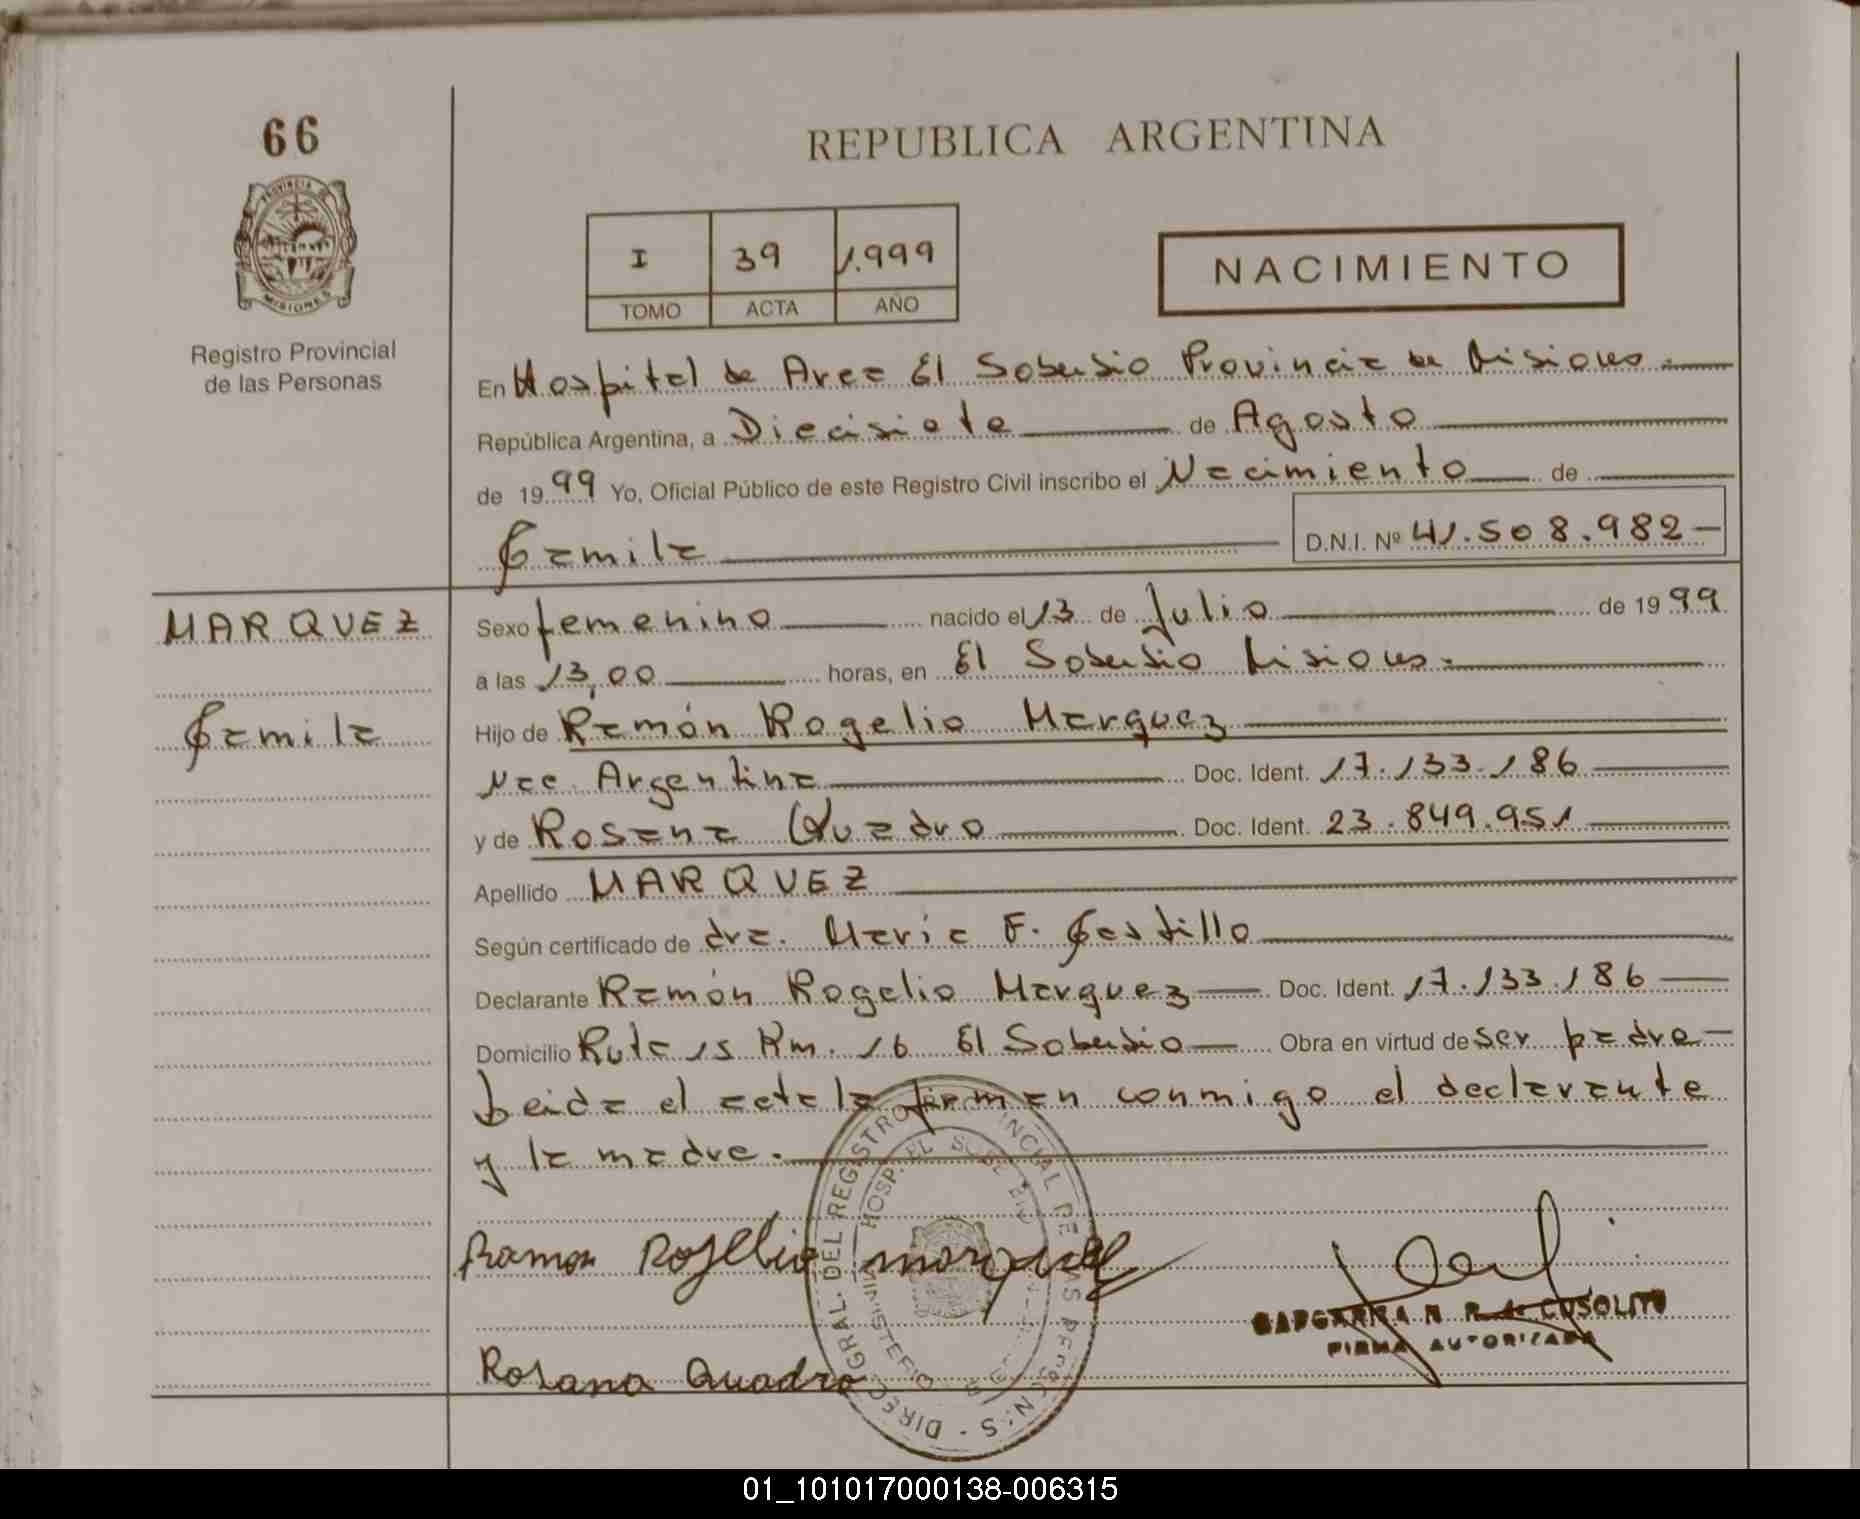 66
REPUBLICA ARGENTINA
PROVINCIA DE
MISIONES
Registro Provincial
de las Personas
I 39 1.999
TOMO ACTA AÑO
NACIMIENTO
En Hospital de Area El Soberbio Provincia de Misiones.
República Argentina, a Diecisiete de Agosto
de 1999 Yo, Oficial Público de este Registro Civil inscribo el Nacimiento de
Camila D.N.I. Nº 41.508.982
MARQUEZ
Camila
Sexo femenino nacido el 13 de Julio de 1999
a las 13,00 horas, en El Soberbio Misiones.
Hijo de Ramón Rogelio Marquez
Nac. Argentina Doc. Ident. 17.133.186
y de Rosana Quadro Doc. Ident. 23.849.951
Apellido MARQUEZ
Según certificado de dra. Maria F. Castillo
Declarante Ramón Rogelio Marquez Doc. Ident. 17.133.186
Domicilio Ruta 15 Km. 16 El Soberbio Obra en virtud de ser padre
Leida el acta la firman conmigo el declarante
y la madre.
Ramon Rogelio marquez
DE COSOLITO
FIRMA AUTORIZADA
Rosana Quadro
01_101017000138-006315